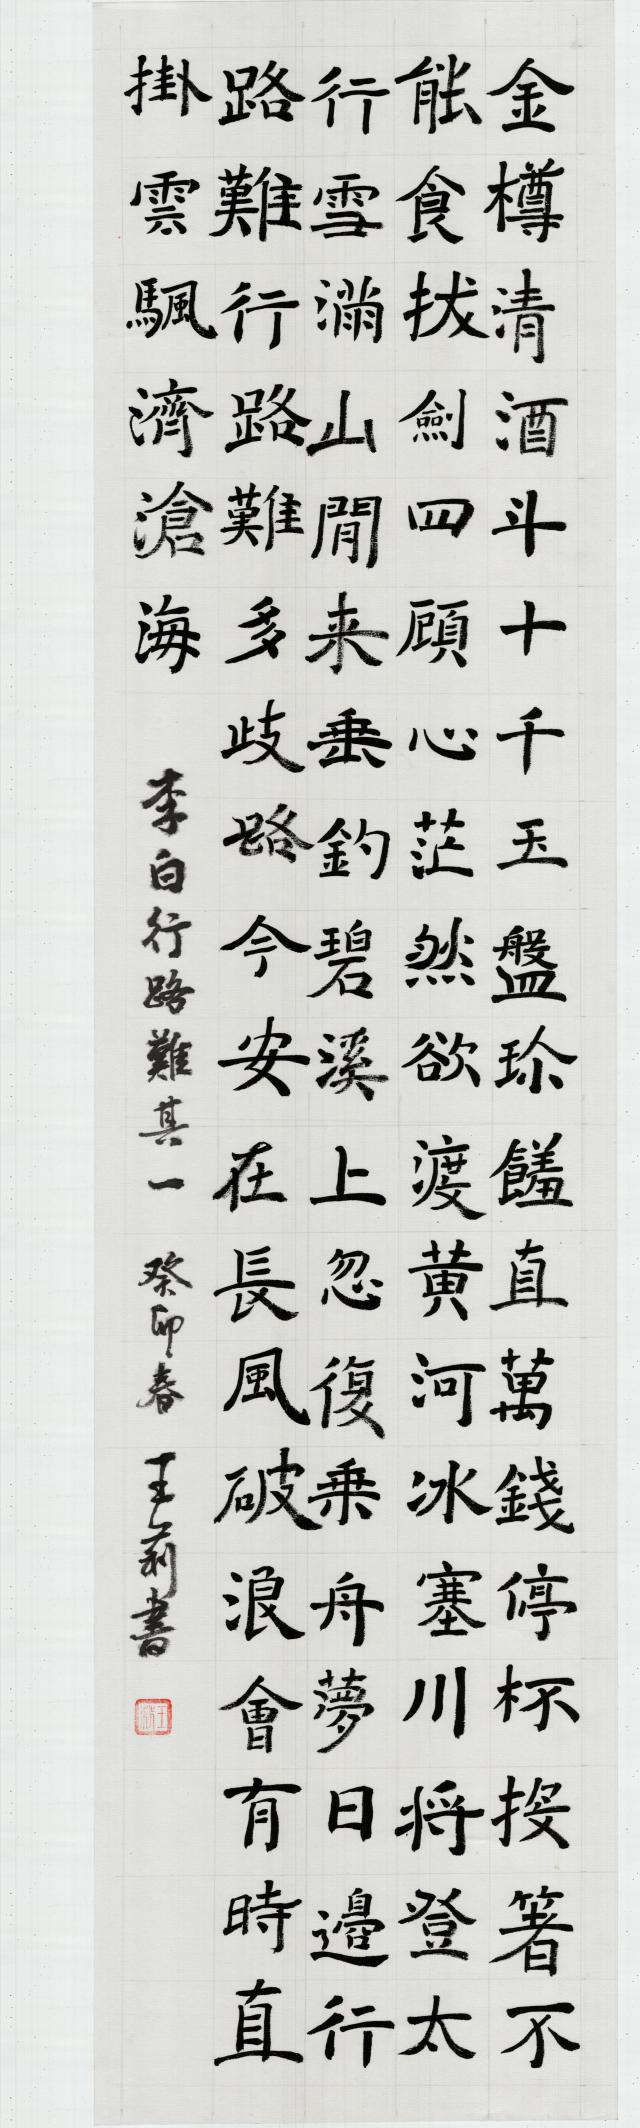 金樽清酒斗十千玉盤珎饈直萬錢停杯投箸不
能食拔劍四顧心茫然欲渡黄河冰塞川将登太
行雪滿山閒来垂釣碧溪上忽復乗舟夢日邊行
路難行路難多歧路今安在長風破浪會有時直
掛雲颿濟滄海
李白行路難其一 癸卯春 王莉書
王莉